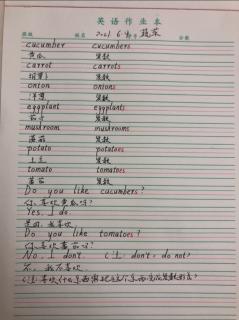 英语作业本
班级 姓名 2021 6. 蔬菜 分数
cucumber cucumbers
黄瓜 复数
carrot carrots
胡萝卜 复数
onion onions
洋葱 复数
eggplant eggplants
茄子 复数
mushroom mushrooms
蘑菇 复数
potato potatoes
土豆 复数
tomato tomatoes
番茄 复数
Do you like cucumbers?
你喜欢黄瓜吗?
Yes, I do.
是的,我喜欢
Do you like tomatoes?
你喜欢番茄吗?
No, I don't. (注: don't = do not)
不,我不喜欢
(注:喜欢什么东西就把这个东西变成复数形式)